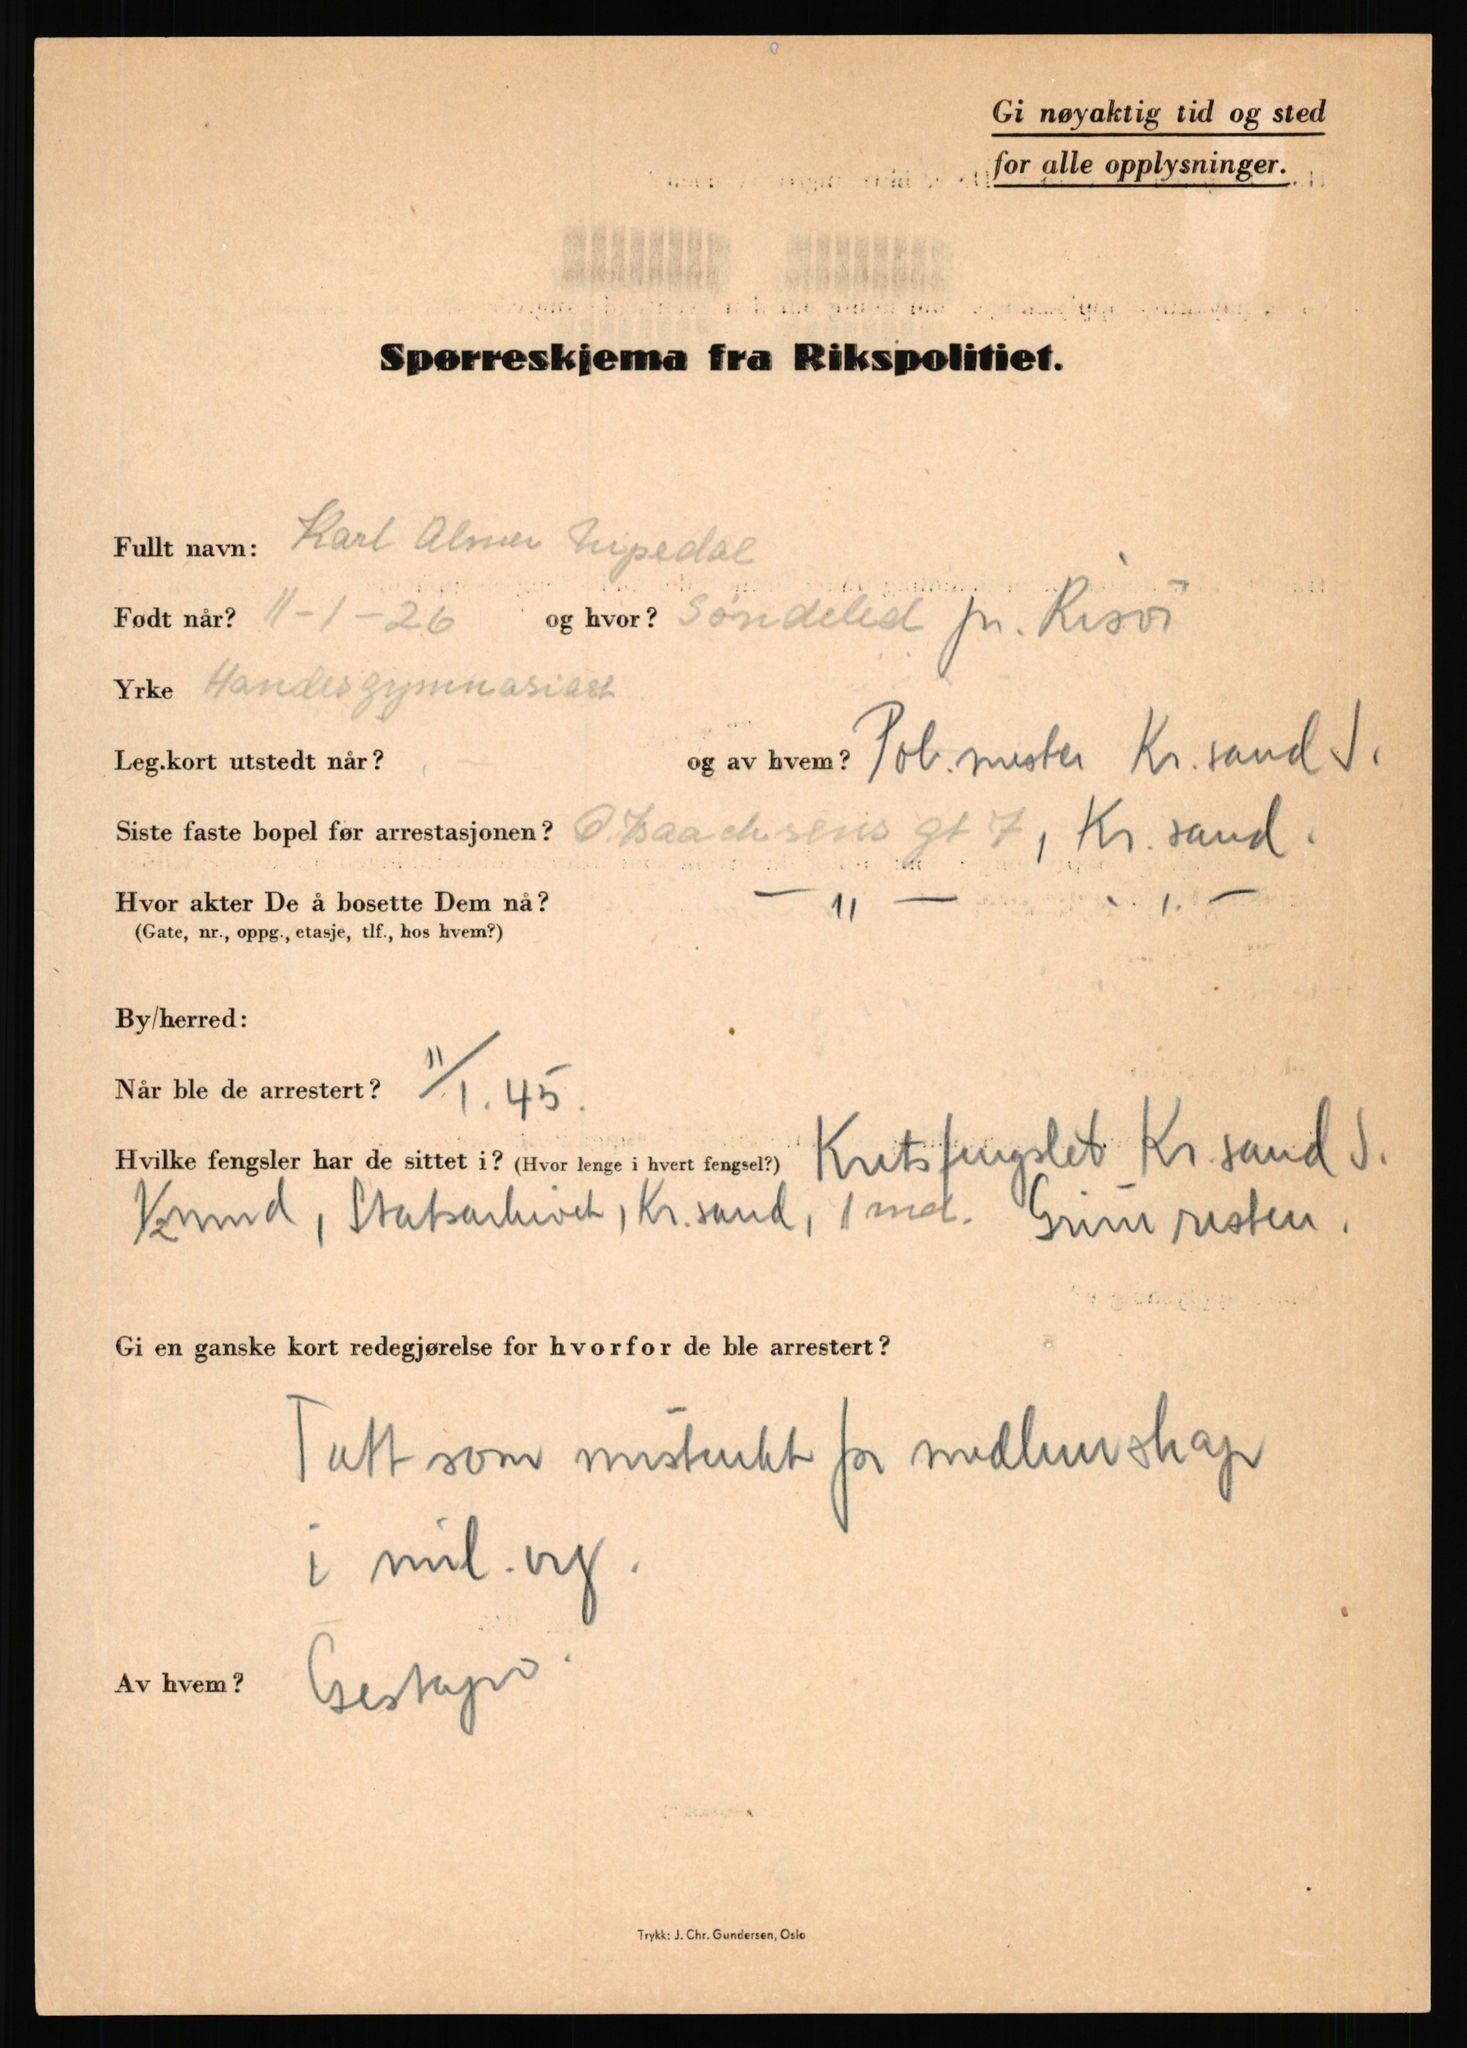 Gi nøyaktig tid og sted
for alle opplysninger.
Spørreskjema fra Rikspolitiet.
Fullt navn: Karl Almer
Født når? 11-1-26 og hvor? Søndeled pr. Risör
Yrke Handesgymnasiast
Leg.kort utstedt når? og av hvem? Pol.mester Kr.sand S.
Siste faste bopel før arrestasjonen? O. Isaachsens gt 7, Kr.sand.
Hvor akter De å bosette Dem nå? — " — — " —
(Gate, nr., oppg., etasje, tlf., hos hvem?)
By/herred:
Når ble de arrestert? 11/1.45.
Hvilke fengsler har de sittet i? (Hvor lenge i hvert fengsel?) Kretsfengslet Kr.sand S.
½ mnd, Statsarkivet, Kr.sand, 1 md. Grini resten.
Gi en ganske kort redegjørelse for hvorfor de ble arrestert?
Tatt som mistenkt for medlemskap
i mil.org.
Av hvem? Gestapo.
Trykk: J. Chr. Gundersen, Oslo